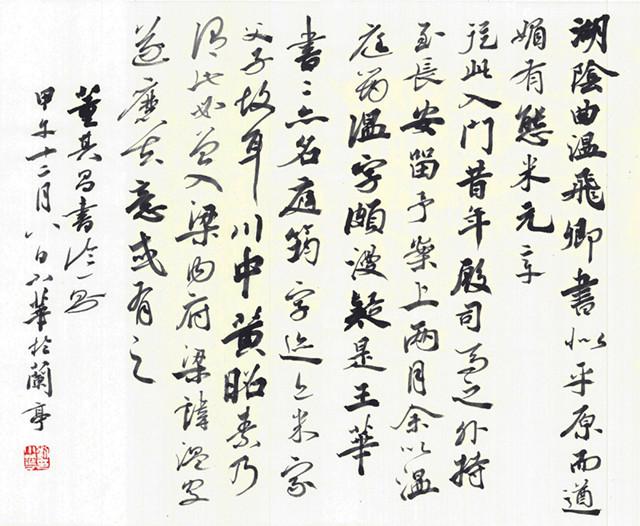 湖陰曲溫飛卿書似平原而遒
媚有態米元章
從此入門昔年殷司馬之外持
至長安留予案上兩月余以溫
庭筠溫字頗漫疑是王華
書〻亦名庭筠字近之米家
父子故耳川中黃昭素乃
謂此必曾入梁內府梁諱溫
或有之
董其昌書論一則
甲午十二月八日小華於蘭亭